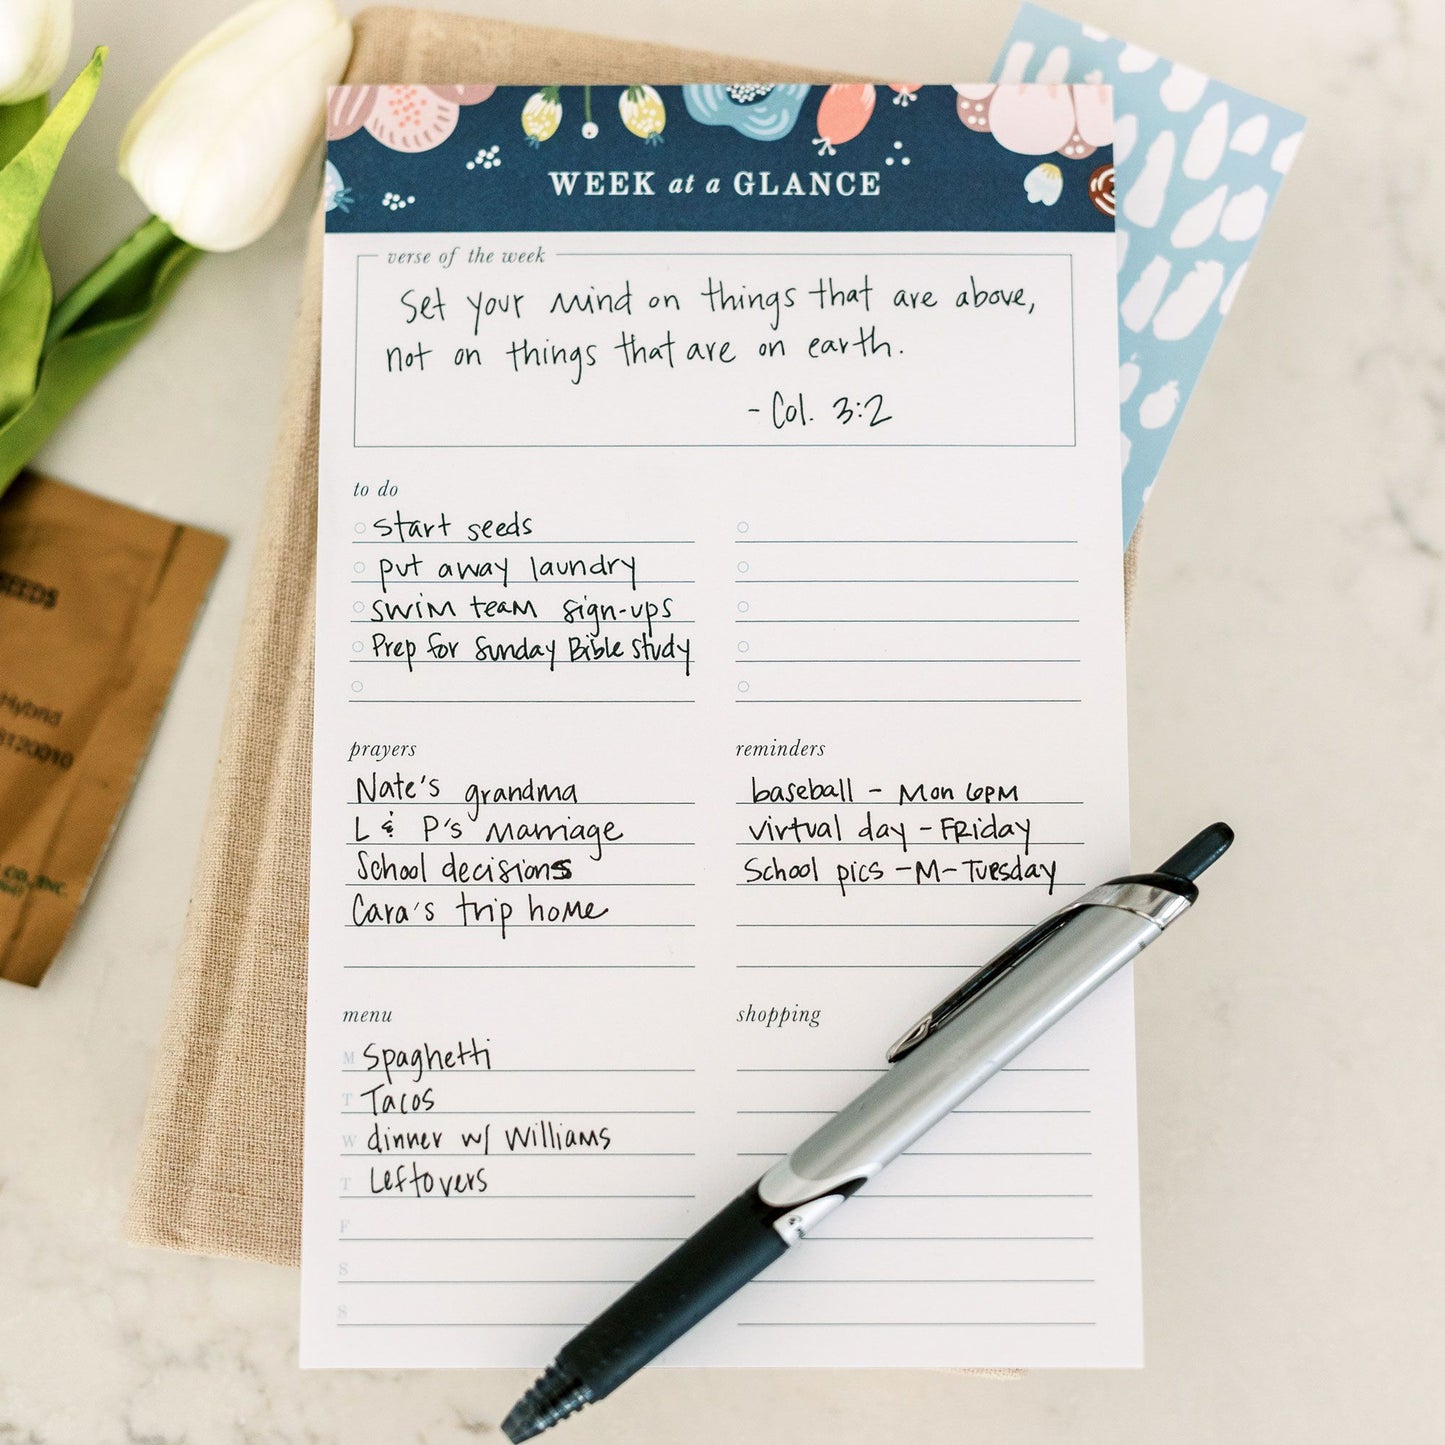 WEEK at a GLANCE
verse of the week
Set your mind on things that are above,
not on things that are on earth.
- Col. 3:2
to do
start seeds
put away laundry
swim team sign-ups
Prep for Sunday Bible study
prayers
Nate's grandma
L & P's marriage
School decisions
Cara's trip home
reminders
baseball - Mon 6PM
virtual day - Friday
School pics - M - Tuesday
menu
M Spaghetti
T Tacos
W dinner w/ Williams
T Leftovers
F
S
S
shopping
SEEDS
Hybrid
8120010
CO., INC.